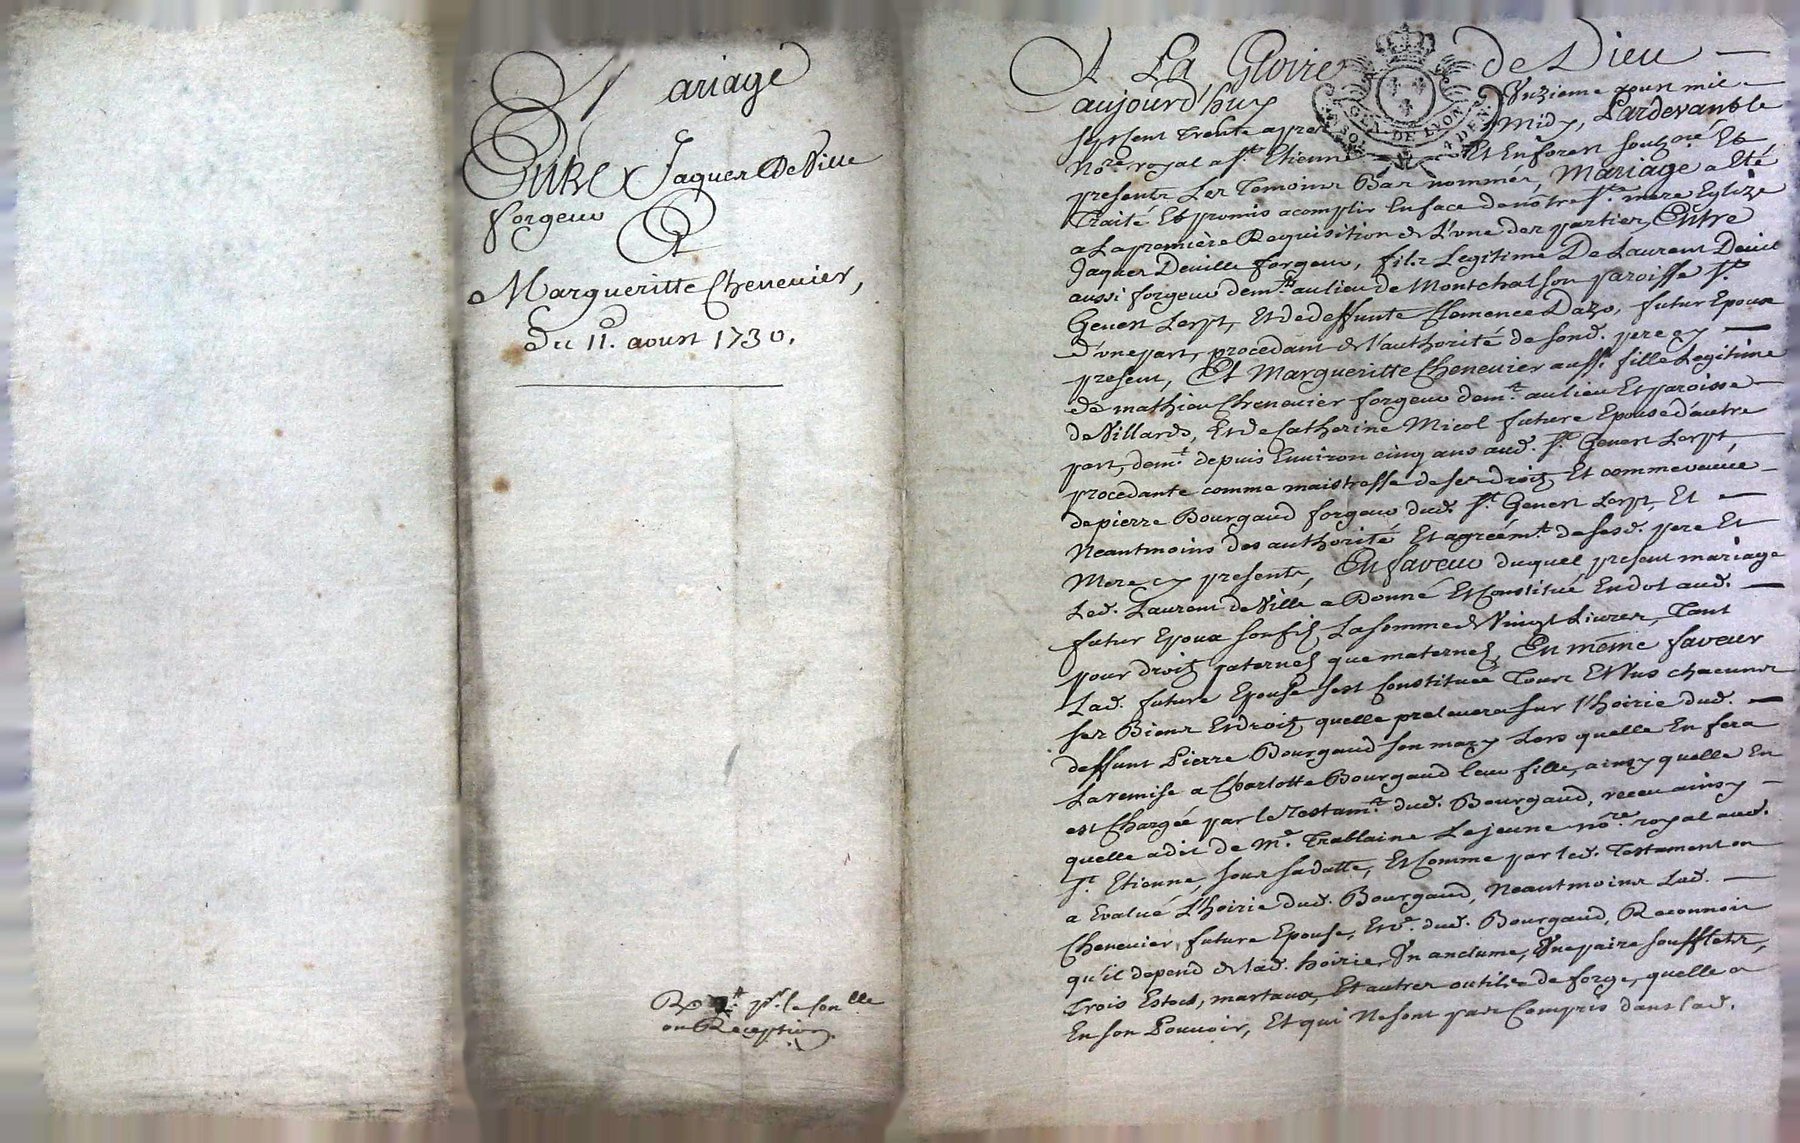 Mariage
Entre Jaques DeVille
forgeur
Et
Margueritte Chenevier,
Du 11. aoust 1730.
pr. le con.lle
ou Reception.
A La Gloire de Dieu
aujourd'huy Unzieme aoust mil
sept cent trente apres Midy, Pardevant le
No.re royal a St. Etienne Et En forest soubz.né Et
presents Les Temoins Bas nommés, Mariage a Eté
Traité Et promis acomplir En face de nôtre Ste. mere Eglize
a La première Requisition de L'une des parties, Entre
Jaques Deville forgeur, fils Legitime De Laurent Deville
aussi forgeur dem.t au lieu de Montchal son paroisse St.
Genest Lerpt, Et de deffunte Clemence Dazo, futur Epoux
d'une part, procedant de l'authorité de sond. pere cy
present, Et Margueritte Chenevier aussy fille Legitime
de mathieu Chenevier forgeur dem.t au lieu Et paroisse
de Villards, Et de Catherine Micol future Epouse d'autre
part, dem.t depuis Environ cinq ans aud. St. Genest Lerpt,
procedante comme maistresse de ses droits Et comme veuve
de pierre Bourgaud forgeur dud. St. Genest Lerpt, Et
Neantmoins des authorité Et agreém.t de sesd. pere Et
Mere cy presents, En faveur duquel present mariage
Led. Laurent de Ville a Donné Et Constitué En dot aud.
futur Epoux son fils La somme de Vingt Livres, Tant
pour droits paternels que maternels, En même faveur
Lad. future Epouse sest Constituée Tous Et Uns chacuns
ses Biens Et droits quelle prelevera sur l'hoirie dud.
deffunt Pierre Bourgaud son mary Lors quelle En fera
La remise a Charlotte Bourgaud leur fille, ainsy quelle En
est Chargée par le Testam.t dud. Bourgaud, receu ainsy
quelle a dit de Me. Trablaine Le jeune no.re royal aud.
St. Etienne, sous sa datte, Et Comme par led. Testament on
a Evalué L'hoirie dud. Bourgaud, Neantmoins Lad.
Chenevier future Epouse, Et ve. dud. Bourgaud, Reconnoit
qu'il depend de lad. hoirie Un anclume, Une paire soufflets,
Trois Estocs, martaux, Et autres outils de forge, quelle a
En son Pouvoir, Et qui Ne sont pas Compris dans lad.